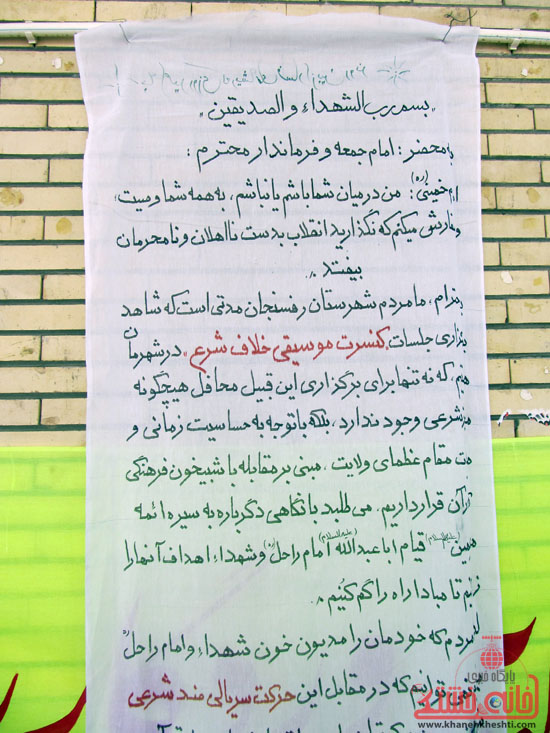 "بسم رب الشهداء و الصديقين"
بمحضر : امام جمعه و فرماندار محترم :
خمینی (ره): من در میان شما باشم یا نباشم، به همه شما وصیت
و سفارش میکنم که نگذارید انقلاب بدست نااهلان و نامحرمان
بیفتد.
ما مردم شهرستان رفسنجان مدتی است که شاهد
برگزاری جلسات "کنسرت موسیقی خلاف شرع" در شهرمان
که نه تنها برای برگزاری این قبیل محافل هیچگونه
شرعی وجود ندارد، بلکه با توجه به حساسیت زمانی و
مقام عظمای ولایت، مبنی بر مقابله با شبیخون فرهنگی
قرار داریم. می طلبد با نگاهی دگرباره به سیره ائمه
(علیهم السلام) قیام اباعبدالله (علیه السلام) امام راحل (ره) و شهداء اهداف آنها را
تا مبادا راه را گم کنیم.
مردم که خودمان را مدیون خون شهداء و امام راحل
نمی توانیم که در مقابل این حرکت سریالی ضد شرعی
پایگاه خبری
خانه خشتی
www.khanehkheshti.com